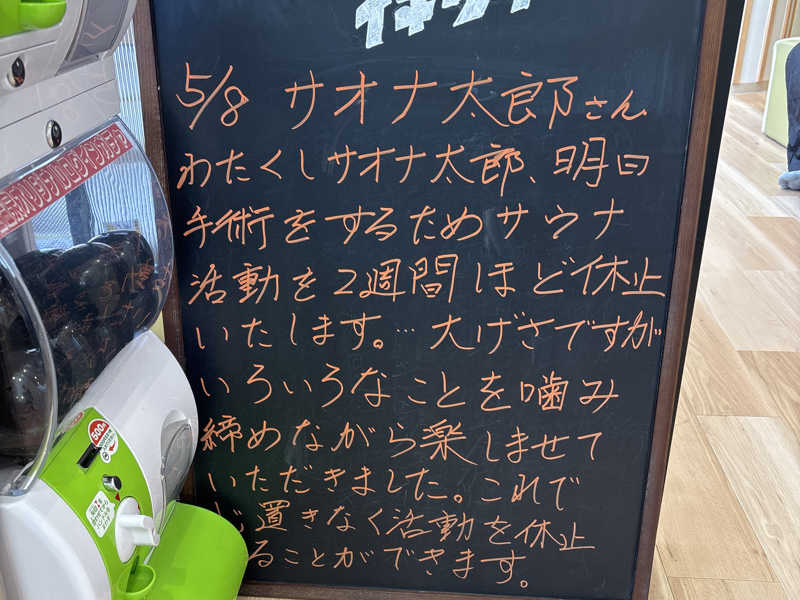 イキウメ
5/8 サオナ太郎さん
わたくしサオナ太郎、明日
手術をするためサウナ
活動を2週間ほど休止
いたします。…大げさですが
いろいろなことを噛み
締めながら楽しませて
いただきました。これで
置きなく活動を休止
ることができます。
500円